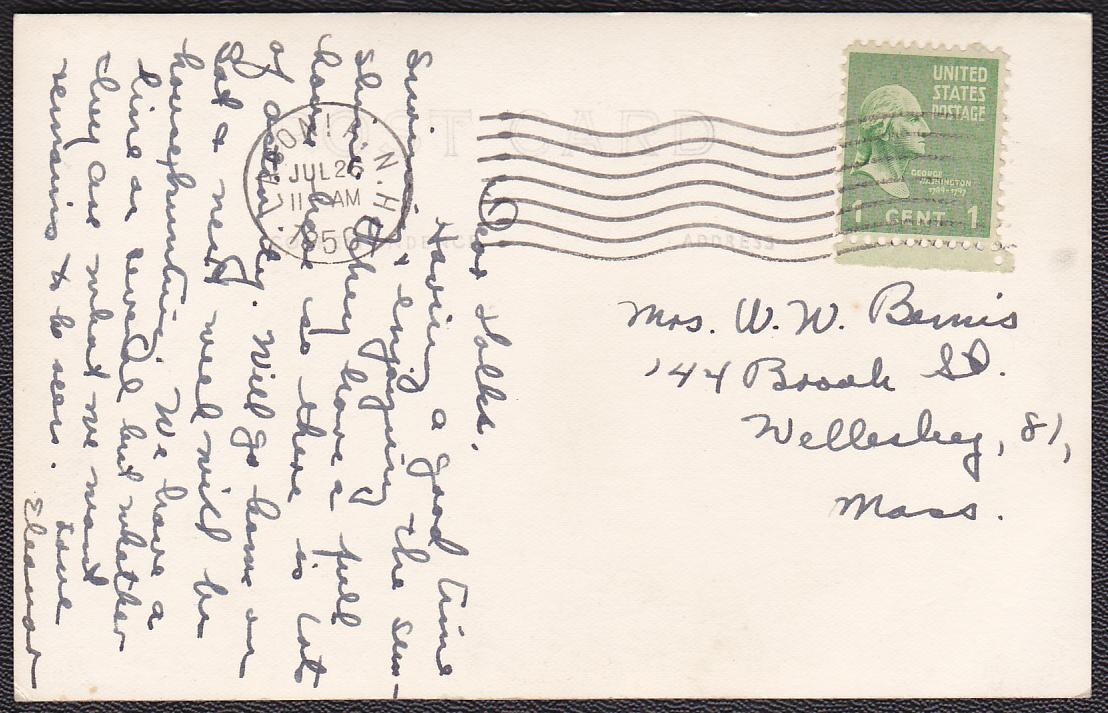 POST CARD
CORRESPONDENCE
ADDRESS
LACONIA, N.H.
JUL 26
11 AM
1950
UNITED
STATES
POSTAGE
GEORGE
WASHINGTON
1789-1797
1 CENT 1
Mrs. W. W. Bemis
144 Brook St.
Wellesley, 81,
Mass.
Dear Folks,
Having a good time
Swimming & enjoying the sun-
shine. They have a full
house here so there is lot
of activity. Will go home on
Sat & next week will be
househunting. We have a
line on several but whether
they are what we want
remains to be seen.
Love
Eleanor